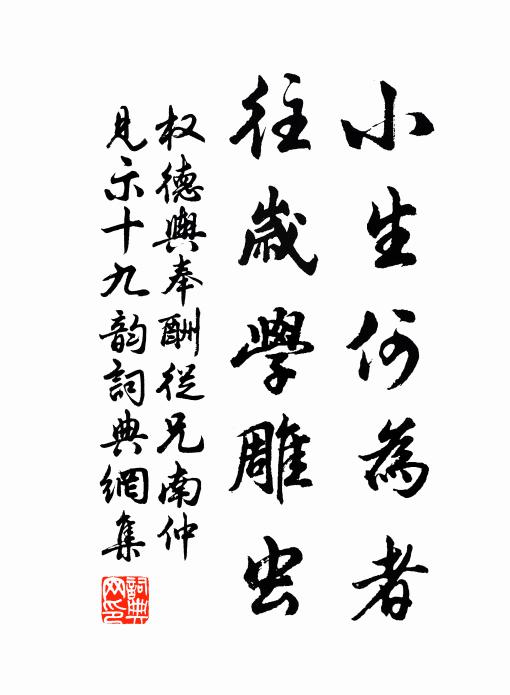 小生何為者
往歲學雕虫
权德輿奉酬從兄南仲
見示十九韵詞典網集
詞典網印